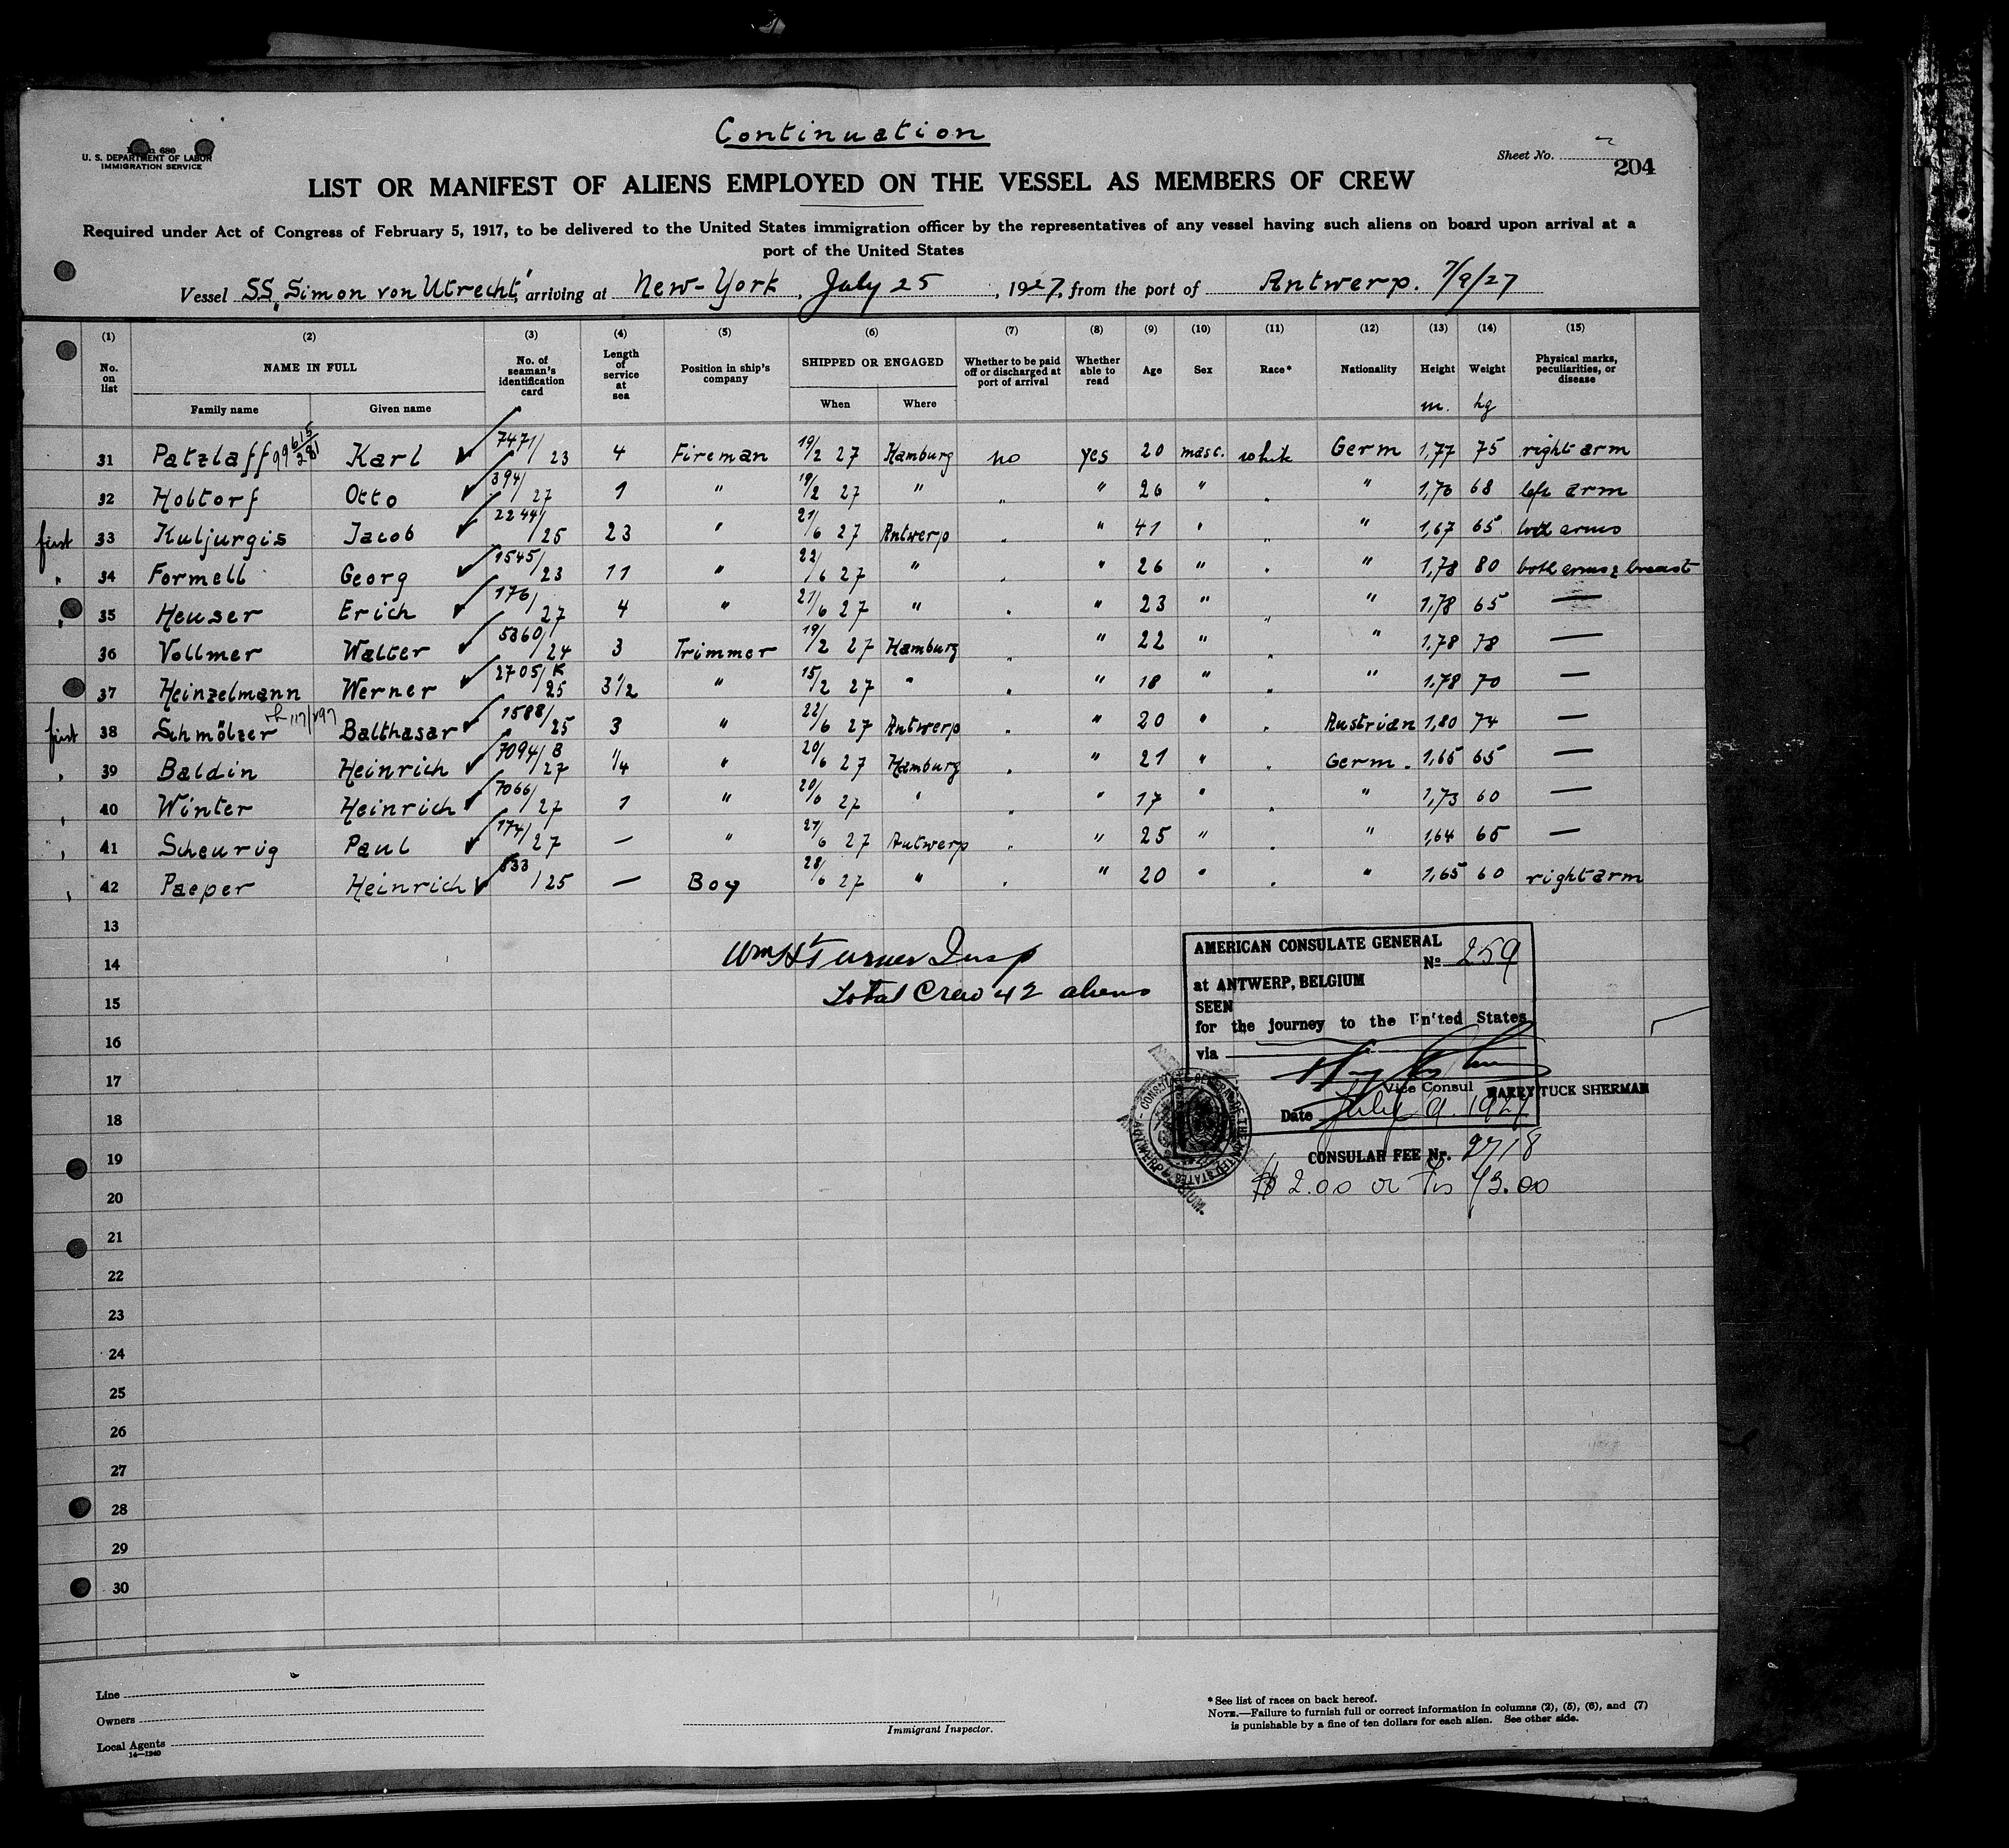 Continuation
Form 680
U. S. DEPARTMENT OF LABOR
IMMIGRATION SERVICE
Sheet No. 2
204
LIST OR MANIFEST OF ALIENS EMPLOYED ON THE VESSEL AS MEMBERS OF CREW
Required under Act of Congress of February 5, 1917, to be delivered to the United States immigration officer by the representatives of any vessel having such aliens on board upon arrival at a
port of the United States
Vessel SS „Simon von Utrecht" arriving at New-York, July 25, 1927, from the port of Antwerp. 7/9/27
(1) (2) (3) (4) (5) (6) (7) (8) (9) (10) (11) (12) (13) (14) (15)
No. on list NAME IN FULL No. of seaman's identification card Length of service at sea Position in ship's company SHIPPED OR ENGAGED Whether to be paid off or discharged at port of arrival Whether able to read Age Sex Race* Nationality Height Weight Physical marks, peculiarities, or disease
Family name Given name When Where m. kg
31 Patzlaff 99615/281 Karl ✓ 7471/23 4 Fireman 19/2 27 Hamburg no yes 20 masc. white Germ 1,77 75 right arm
32 Holtorf Otto ✓ 394/27 1 " 19/2 27 " " " 26 " " " 1,70 68 left arm
first 33 Kuljurgis Jacob ✓ 2244/25 23 " 21/6 27 Antwerp " " 41 " " " 1,67 65 both arms
" 34 Formell Georg ✓ 1545/23 11 " 22/6 27 " " " 26 " " " 1,78 80 both arms & breast
" 35 Heuser Erich ✓ 176/27 4 " 21/6 27 " " " 23 " " " 1,78 65 —
36 Vollmer Walter ✓ 5360/24 3 Trimmer 19/2 27 Hamburg " " 22 " " " 1,78 78 —
37 Heinzelmann Werner ✓ 2705/K 25 3 1/2 " 15/2 27 " " " 18 " " " 1,78 70 —
first 38 Schmölzer Balthasar ✓ 1588/25 3 " 22/6 27 Antwerp " " 20 " " Austrian 1,80 74 —
" 39 Baldin Heinrich ✓ 7094/B 27 1/4 " 20/6 27 Hamburg " " 21 " " Germ. 1,65 65 —
" 40 Winter Heinrich ✓ 7066/27 1 " 20/6 27 " " " 17 " " " 1,73 60 —
" 41 Scheurig Paul ✓ 174/27 — " 21/6 27 Antwerp " " 25 " " " 1,64 65 —
" 42 Paeper Heinrich ✓ 533/25 — Boy 28/6 27 " " " 20 " " " 1,65 60 right arm
13
14
15
16
17
18
19
20
21
22
23
24
25
26
27
28
29
30
Wm H Turner Insp
Total Crew 42 aliens
AMERICAN CONSULATE GENERAL
No 259
at ANTWERP, BELGIUM
SEEN
for the journey to the United States
via
Vice Consul HARRY TUCK SHERMAN
Date July 9. 1927
CONSULAR FEE Nr. 2718
$ 2.00 or Frs 73.00
Line
Owners
Local Agents
14—1240
Immigrant Inspector.
* See list of races on back hereof.
NOTE.—Failure to furnish full or correct information in columns (2), (5), (6), and (7)
is punishable by a fine of ten dollars for each alien. See other side.